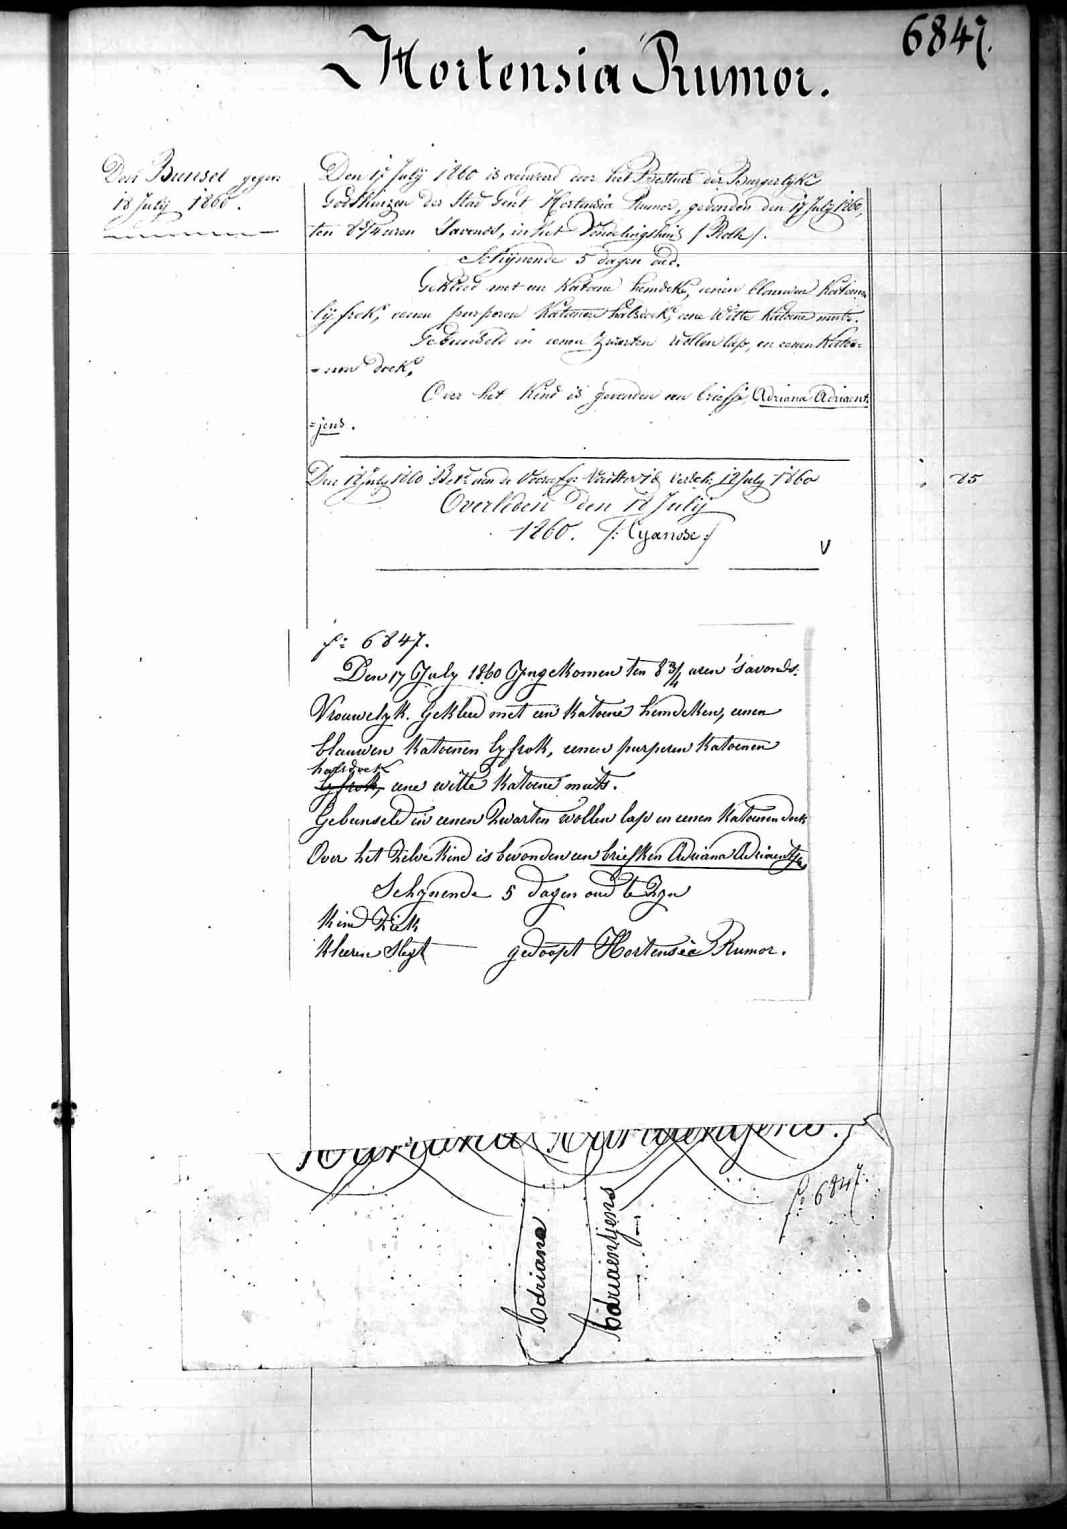 6847.
Hortensia Rumor.
Den Bunsel gegeven
18 July 1860.
Den 17 July 1860 is aenveerd door het Bestuer der Burgerlyke
Godshuizen der Stad Gent Hortensia Rumor, gevonden den 17 July 1860,
ten 8 3/4 uren 's avonds, in het Vondelingshuis / Rolle /.
Schynende 5 dagen oud.
Gekleed met een katoene hemdeke, eenen blauwen katoenen
lyfrok, eenen purperen katoenen halsdoek, eene witte katoene muts.
Gebunseld in eenen zwarten wollen lap, en eenen katoe=
=nen doek.
Over het kind is gevonden een briefje Adriana Adriaent
=jens.
Den 18 July 1860 aan de 18 July 1860
75
Overleden den 18 July
1860. /: Cyanose :/
V
f° 6847.
Den 17 July 1860 Ingekomen ten 8 3/4 uren 's avonds.
Vrouwelyk. Gekleed met een katoene hemdeken, eenen
blauwen katoenen lyfrok, eenen purperen katoenen
halsdoek
lyfrok, eene witte katoene muts.
Gebunseld in eenen zwarten wollen lap en eenen katoenen doek
Over het zelve kind is bevonden een briefken Adriana Adriaentje
Schynende 5 dagen oud te zyn
kind ziek
kleeren slegt gedoopt Hortensia Rumor.
Adriana Adriaentjens.
f° 6847.
Adriana
Adriaentjens